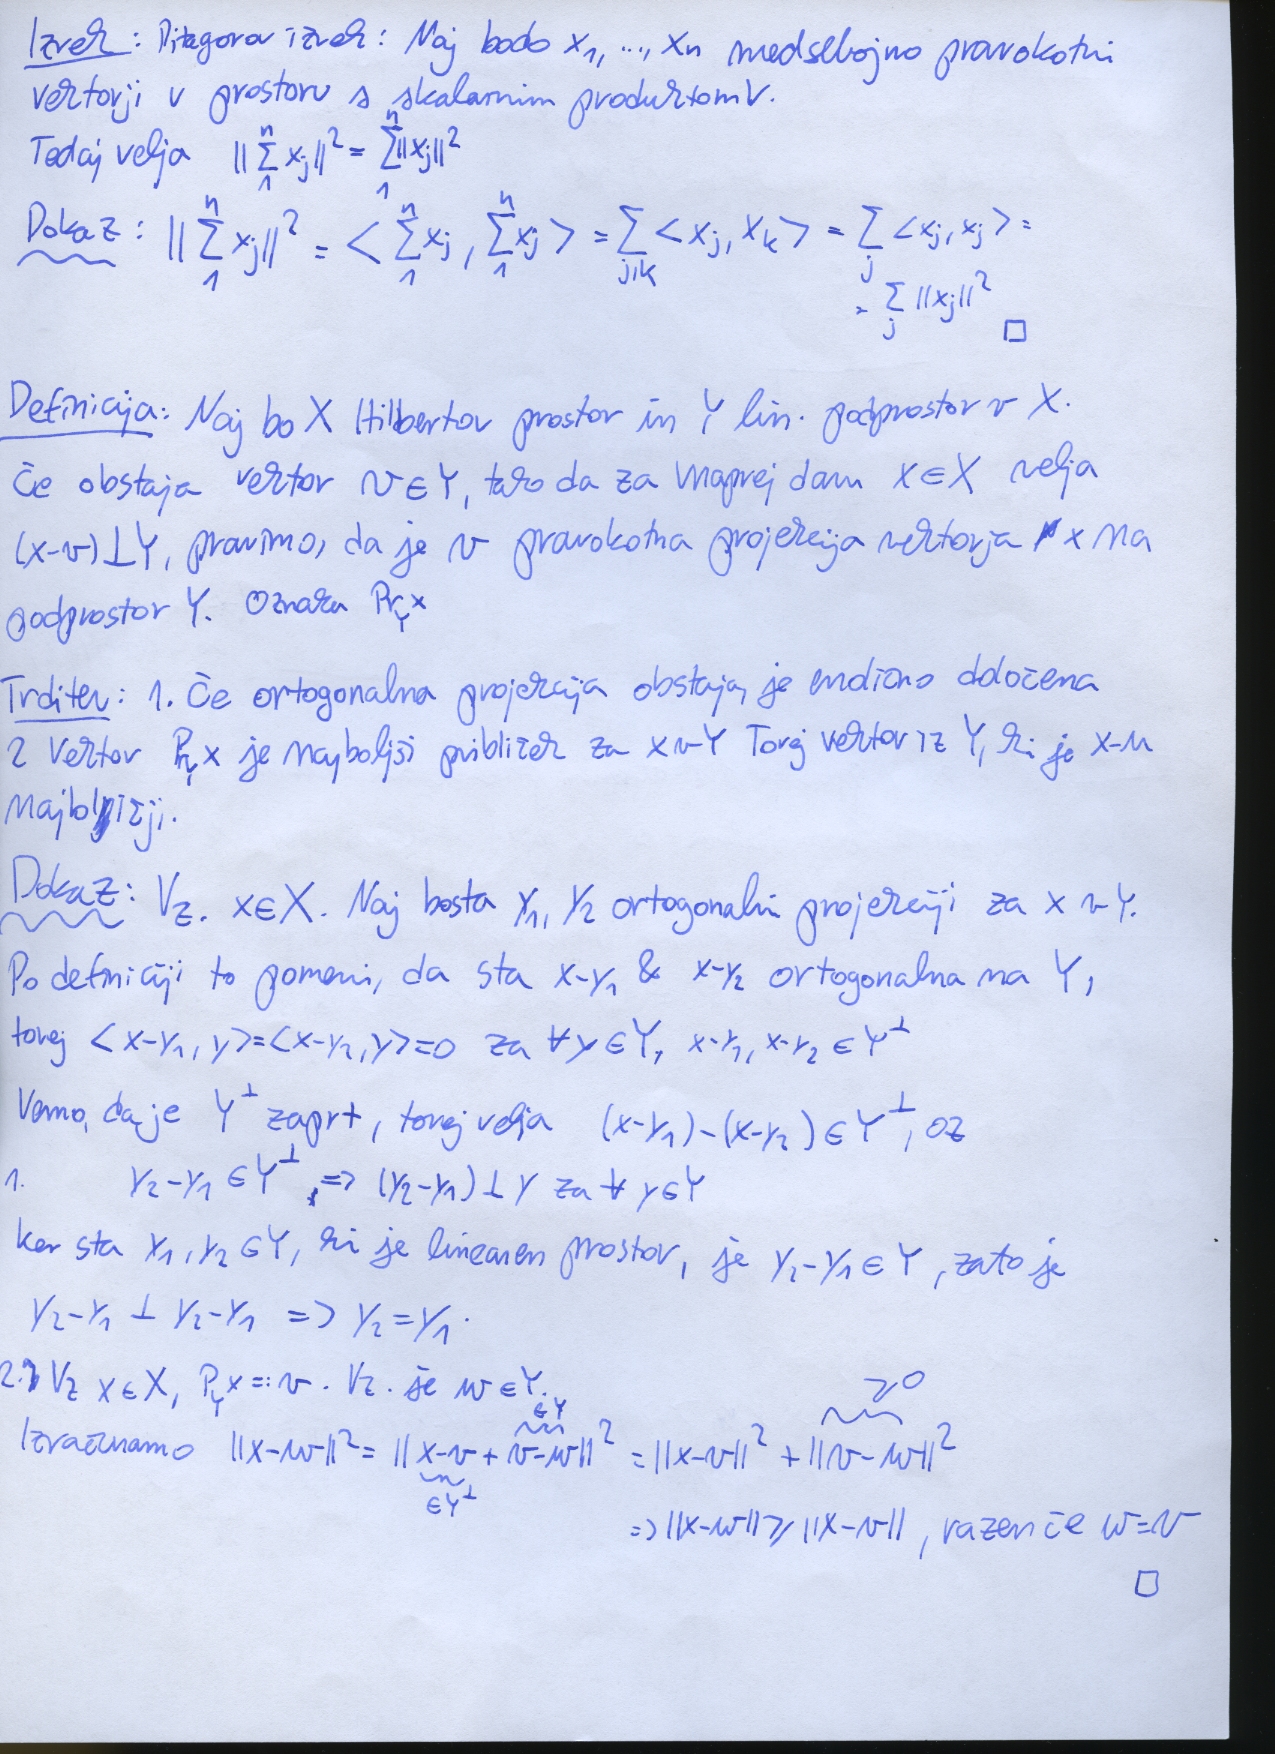 Izrek: Pitagorov izrek: Naj bodo x₁, ..., xₙ medsebojno pravokotni
vektorji v prostoru s skalarnim produktom V.
Tedaj velja ||∑₁ⁿ xⱼ||² = ∑₁ⁿ ||xⱼ||²
Dokaz: ||∑₁ⁿ xⱼ||² = <∑₁ⁿ xⱼ, ∑₁ⁿ xⱼ> = ∑_{j,k} <xⱼ, xₖ> = ∑_j <xⱼ, xⱼ> =
= ∑_j ||xⱼ||² □
Definicija: Naj bo X Hilbertov prostor in Y lin. podprostor v X.
Če obstaja vektor v ∈ Y, tako da za vnaprej dan x ∈ X velja
(x-v) ⊥ Y, pravimo, da je v pravokotna projekcija vektorja x na
podprostor Y. Oznaka Pr_Y x
Trditev: 1. Če ortogonalna projekcija obstaja, je enolično določena
2 Vektor Pr_Y x je najboljši približek za x v Y Torej vektor iz Y, ki je x-u
najbližji.
Dokaz: Vz. x∈X. Naj bosta y₁, y₂ ortogonalni projekciji za x v Y.
Po definiciji to pomeni, da sta x-y₁ & x-y₂ ortogonalna na Y,
torej <x-y₁, y> = <x-y₂, y> = 0 za ∀y ∈ Y, x-y₁, x-y₂ ∈ Y^⊥
Vemo, da je Y^⊥ zaprt, torej velja (x-y₁)-(x-y₂) ∈ Y^⊥, oz
1. y₂-y₁ ∈ Y^⊥ => (y₂-y₁) ⊥ y za ∀ y∈Y
ker sta y₁, y₂ ∈ Y, ki je linearen prostor, je y₂-y₁ ∈ Y, zato je
y₂-y₁ ⊥ y₂-y₁ => y₂ = y₁.
2. Vz x ∈ X, P_Y x =: v. Vz. je w ∈ Y.
Izračunamo ||x-w||² = ||x-v (∈Y^⊥) + v-w (∈Y)||² = ||x-v||² + ||v-w||² (≥0)
=> ||x-w|| ≥ ||x-v||, razen če w=v
□